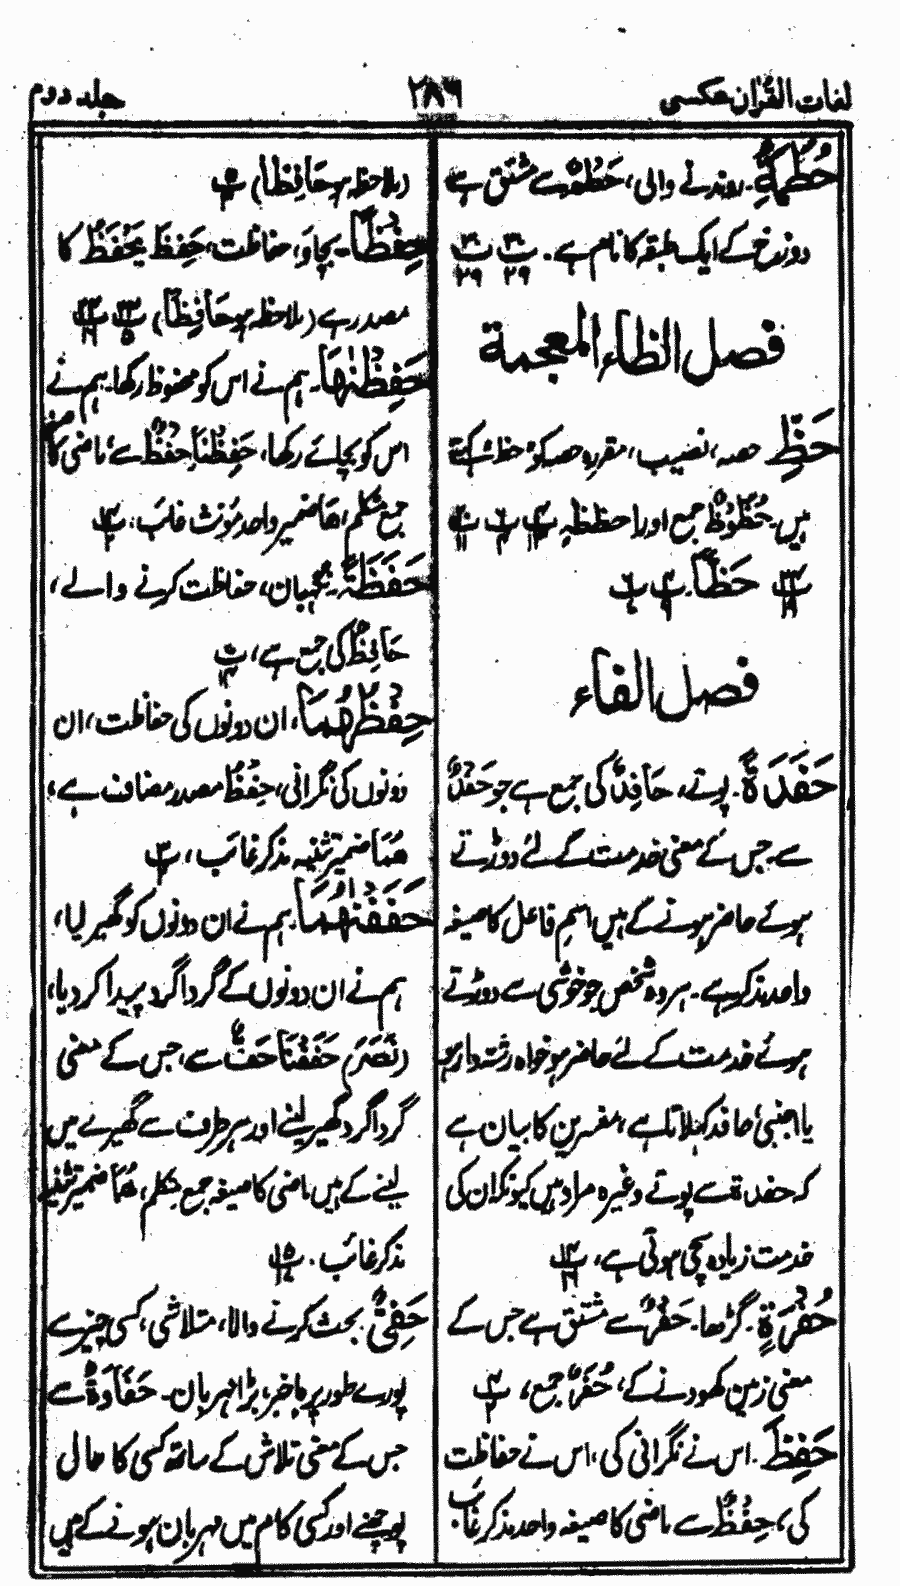 لغات القرآن عکسی
۲۸۹
جلد دوم
حُطَمَةٌ۔ روندنے والی، حَطْمٌ سے مشتق ہے
دوزخ کے ایک طبقہ کا نام ہے۔ پ۳۰/۲۹ پ۳۰/۲۹
فصل الظاء المعجمة
حَظٍّ حصہ، نصیب، مقررہ حصہ کو حظ کہتے
ہیں۔ حُظُوْظٌ جمع اور احظ
حَظًّا
فصل الفاء
حَفَدَةً۔ پوتے، حَافِدٌ کی جمع ہے جو حَفْدٌ
سے جس کے معنی خدمت کے لئے دوڑتے
ہوئے حاضر ہونے کے ہیں اسم فاعل کا صیغہ
واحد مذکر ہے۔ ہر وہ شخص جو خوشی سے دوڑتے
ہوئے خدمت کے لئے حاضر ہو خواہ رشتہ دار ہو
یا اجنبی حافد کہلاتا ہے، مفسرین کا بیان ہے
کہ حفدة سے پوتے وغیرہ مراد ہیں کیونکہ ان کی
خدمت زیادہ سچی ہوتی ہے،
حُفْرَةٍ۔ گڑھا۔ حَفْرٌ سے مشتق ہے جس کے
معنی زمین کھودنے کے، حُفَرٌ جمع،
حَفِظَ۔ اس نے نگرانی کی، اس نے حفاظت
کی، حِفْظٌ سے ماضی کا صیغہ واحد مذکر غائب
(ملاحظہ ہو حَافِظًا)
حِفْظًا۔ بچاؤ، حفاظت، حَفِظَ یَحْفَظُ کا
مصدر ہے (ملاحظہ ہو حَافِظًا)
حَفِظْنٰهَا۔ ہم نے اس کو محفوظ رکھا۔ ہم نے
اس کو بچائے رکھا، حَفِظْنَا حِفْظٌ سے ماضی کا صیغہ
جمع متکلم، ھا ضمیر واحد مؤنث غائب،
حَفَظَةً۔ نگہبان، حفاظت کرنے والے،
حَافِظٌ کی جمع ہے،
حِفْظُهُمَا، ان دونوں کی حفاظت، ان
دونوں کی نگرانی، حِفْظُ مصدر مضاف ہے،
هُمَا ضمیر تثنیہ مذکر غائب،
حَفَفْنٰهُمَا۔ ہم نے ان دونوں کو گھیر لیا،
ہم نے ان دونوں کے گرداگرد پیدا کر دیا،
(نَصَرَ) حَفَفْنَا حَفٌّ سے، جس کے معنی
گرداگرد گھیر لینے اور ہر طرف سے گھیرے میں
لینے کے ہیں ماضی کا صیغہ جمع متکلم، هُمَا ضمیر تثنیہ
مذکر غائب۔
حَفِيٌّ۔ بحث کرنے والا، متلاشی، کسی چیز سے
پورے طور پر باخبر، بڑا مہربان۔ حَفَاوَةٌ سے
جس کے معنی تلاش کے ساتھ کسی کا حال
پوچھنے اور کسی کام میں مہربان ہونے کے ہیں